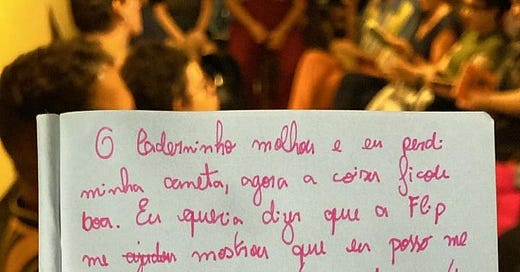 O caderninho molhou e eu perdi
minha caneta, agora a coisa ficou
boa. Eu queria dizer que a Flip
me ajudou mostrou que eu posso me